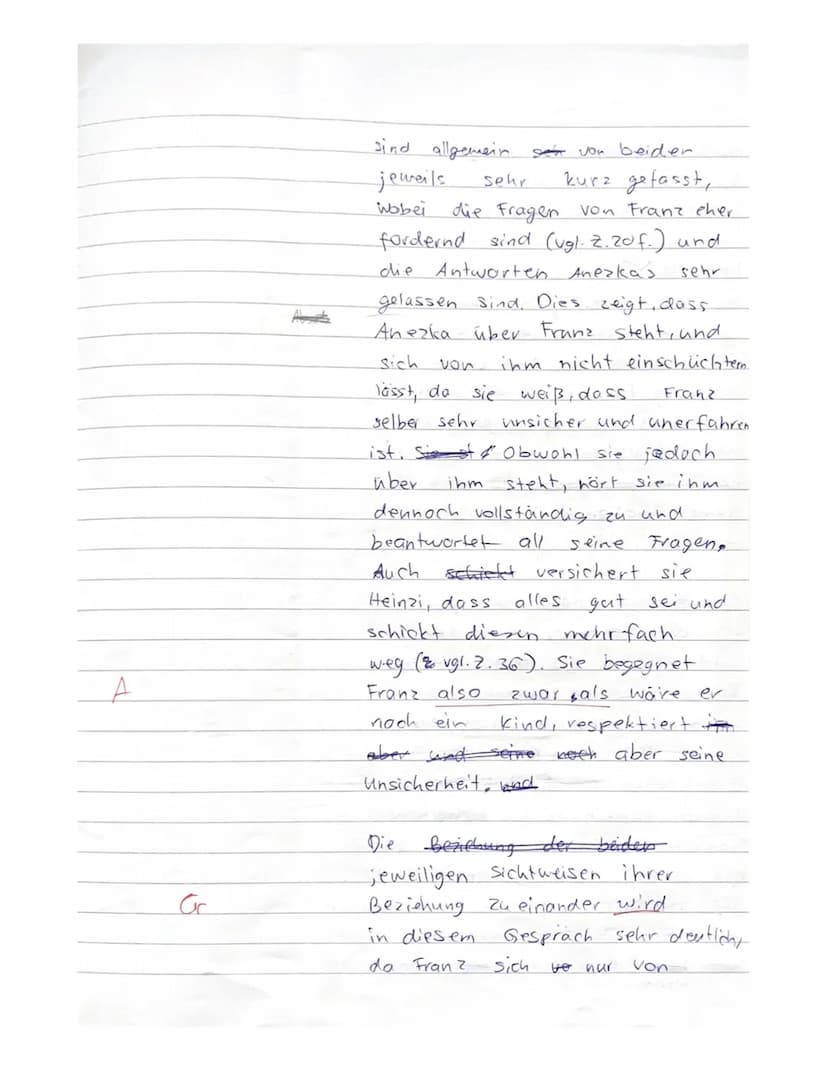 sind allgemein von beider
jeweils sehr kurz gefasst,
wobei die Fragen von Franz eher
fordernd sind (vgl. Z. 20 f.) und
die Antworten Anezkas sehr
gelassen sind. Dies zeigt, dass
Anezka über Franz steht, und
sich von ihm nicht einschüchtern
lässt, da sie weiß, dass Franz
selber sehr unsicher und unerfahren
ist. Obwohl sie jedoch
über ihm steht, hört sie ihm
dennoch vollständig zu und
beantwortet all seine Fragen.
Auch schickt versichert sie
Heinzi, dass alles gut sei und
schickt diesen mehrfach
weg (vgl. Z. 36). Sie begegnet
A Franz also zwar, als wäre er
noch ein Kind, respektiert ihn
aber und seine noch aber seine
Unsicherheit. und
Die Beziehung der beiden
jeweiligen Sichtweisen ihrer
Gr Beziehung zu einander wird
in diesem Gespräch sehr deutlich,
da Franz sich nur von